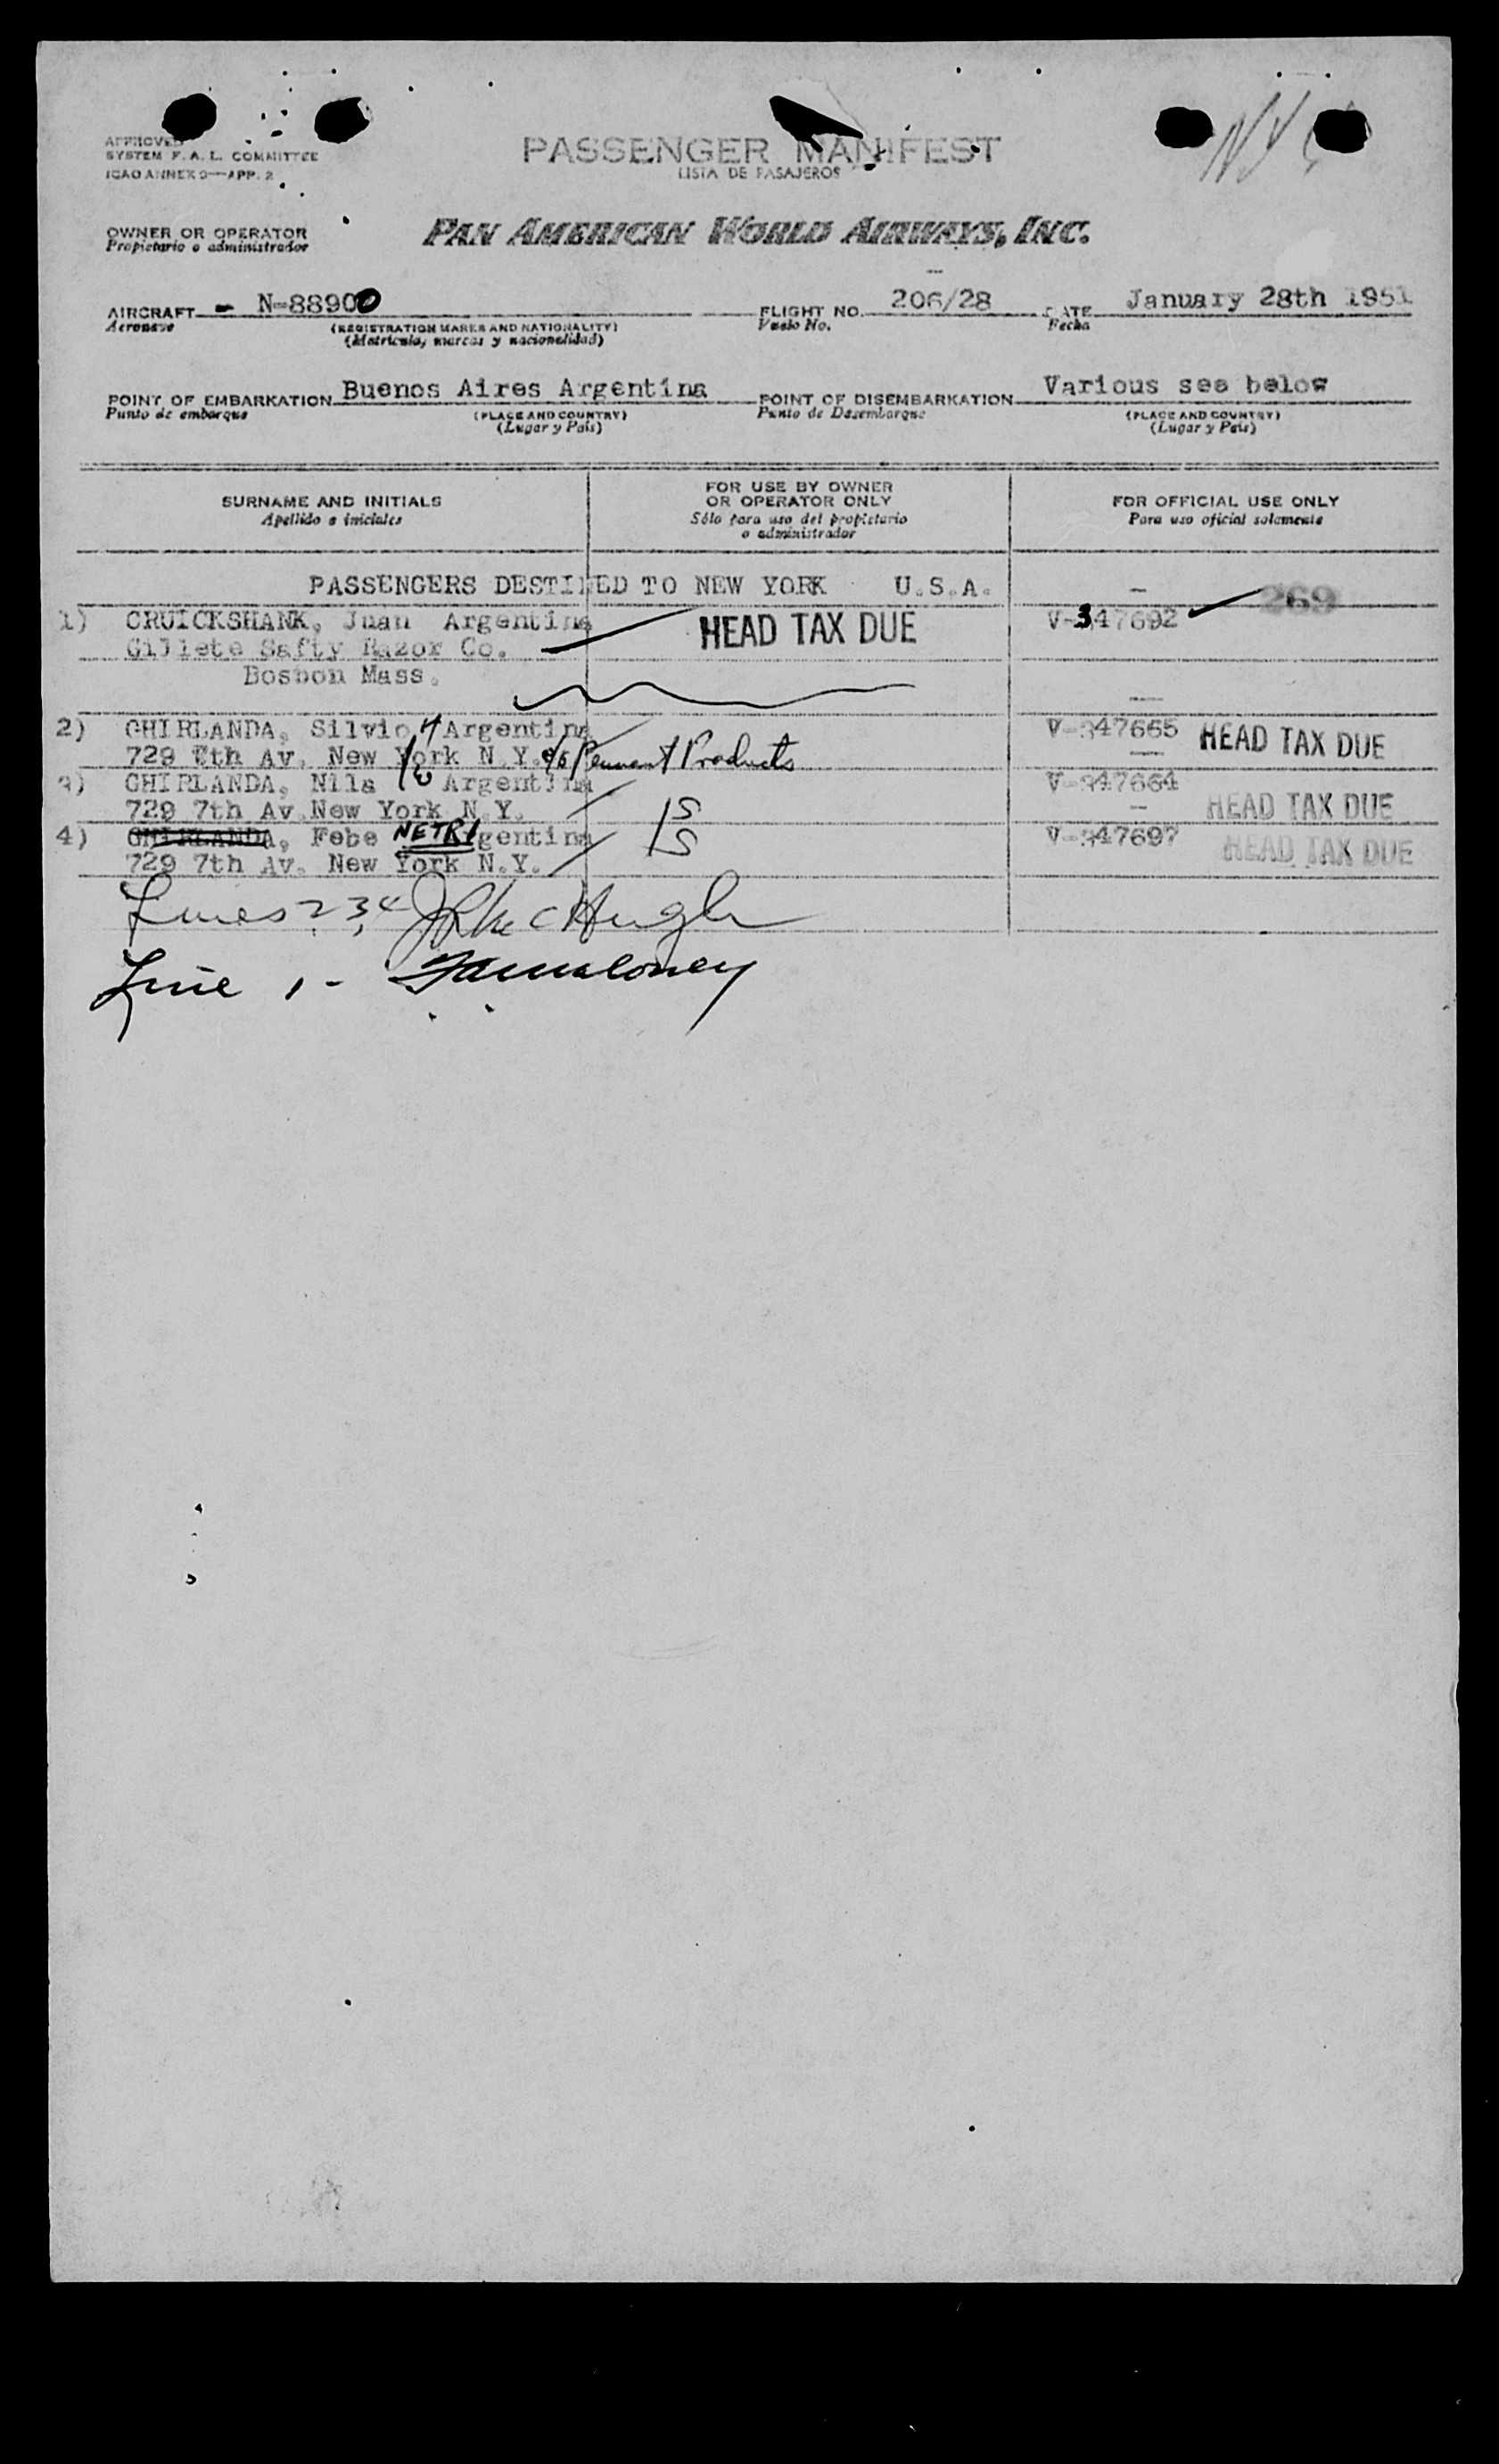 NY
APPROVED
SYSTEM F. A. L. COMMITTEE
ICAO ANNEX 9—APP. 2
PASSENGER MANIFEST
LISTA DE PASAJEROS
OWNER OR OPERATOR
Propietario o administrador
PAN AMERICAN WORLD AIRWAYS, INC.
AIRCRAFT - N-88900 FLIGHT NO. 206/28 DATE January 28th 1951
Aeronave (REGISTRATION MARKS AND NATIONALITY) Vuelo No. Fecha
(Matricula, marcas y nacionalidad)
POINT OF EMBARKATION Buenos Aires Argentina POINT OF DISEMBARKATION Various see below
Punto de embarque (PLACE AND COUNTRY) Punto de Desembarque (PLACE AND COUNTRY)
(Lugar y País) (Lugar y País)
SURNAME AND INITIALS FOR USE BY OWNER OR OPERATOR ONLY FOR OFFICIAL USE ONLY
Apellido e iniciales Sólo para uso del propietario o administrador Para uso oficial solamente
PASSENGERS DESTINED TO NEW YORK U.S.A. - 269
1) CRUICKSHANK, Juan Argentina HEAD TAX DUE V-347692
Gillete Safty Razor Co.
Boston Mass.
2) GHIRLANDA, Silvio H Argentina V-347665 HEAD TAX DUE
729 7th Av. New York N.Y. c/o Pennant Products
3) GHIRLANDA, Nila Argentina V-347664
729 7th Av. New York N.Y. HEAD TAX DUE
4) GHIRLANDA, Febe NETRI Argentina V-347697 HEAD TAX DUE
729 7th Av. New York N.Y.
Lines 2 3 4 J P McHugh
Line 1 - Maloney